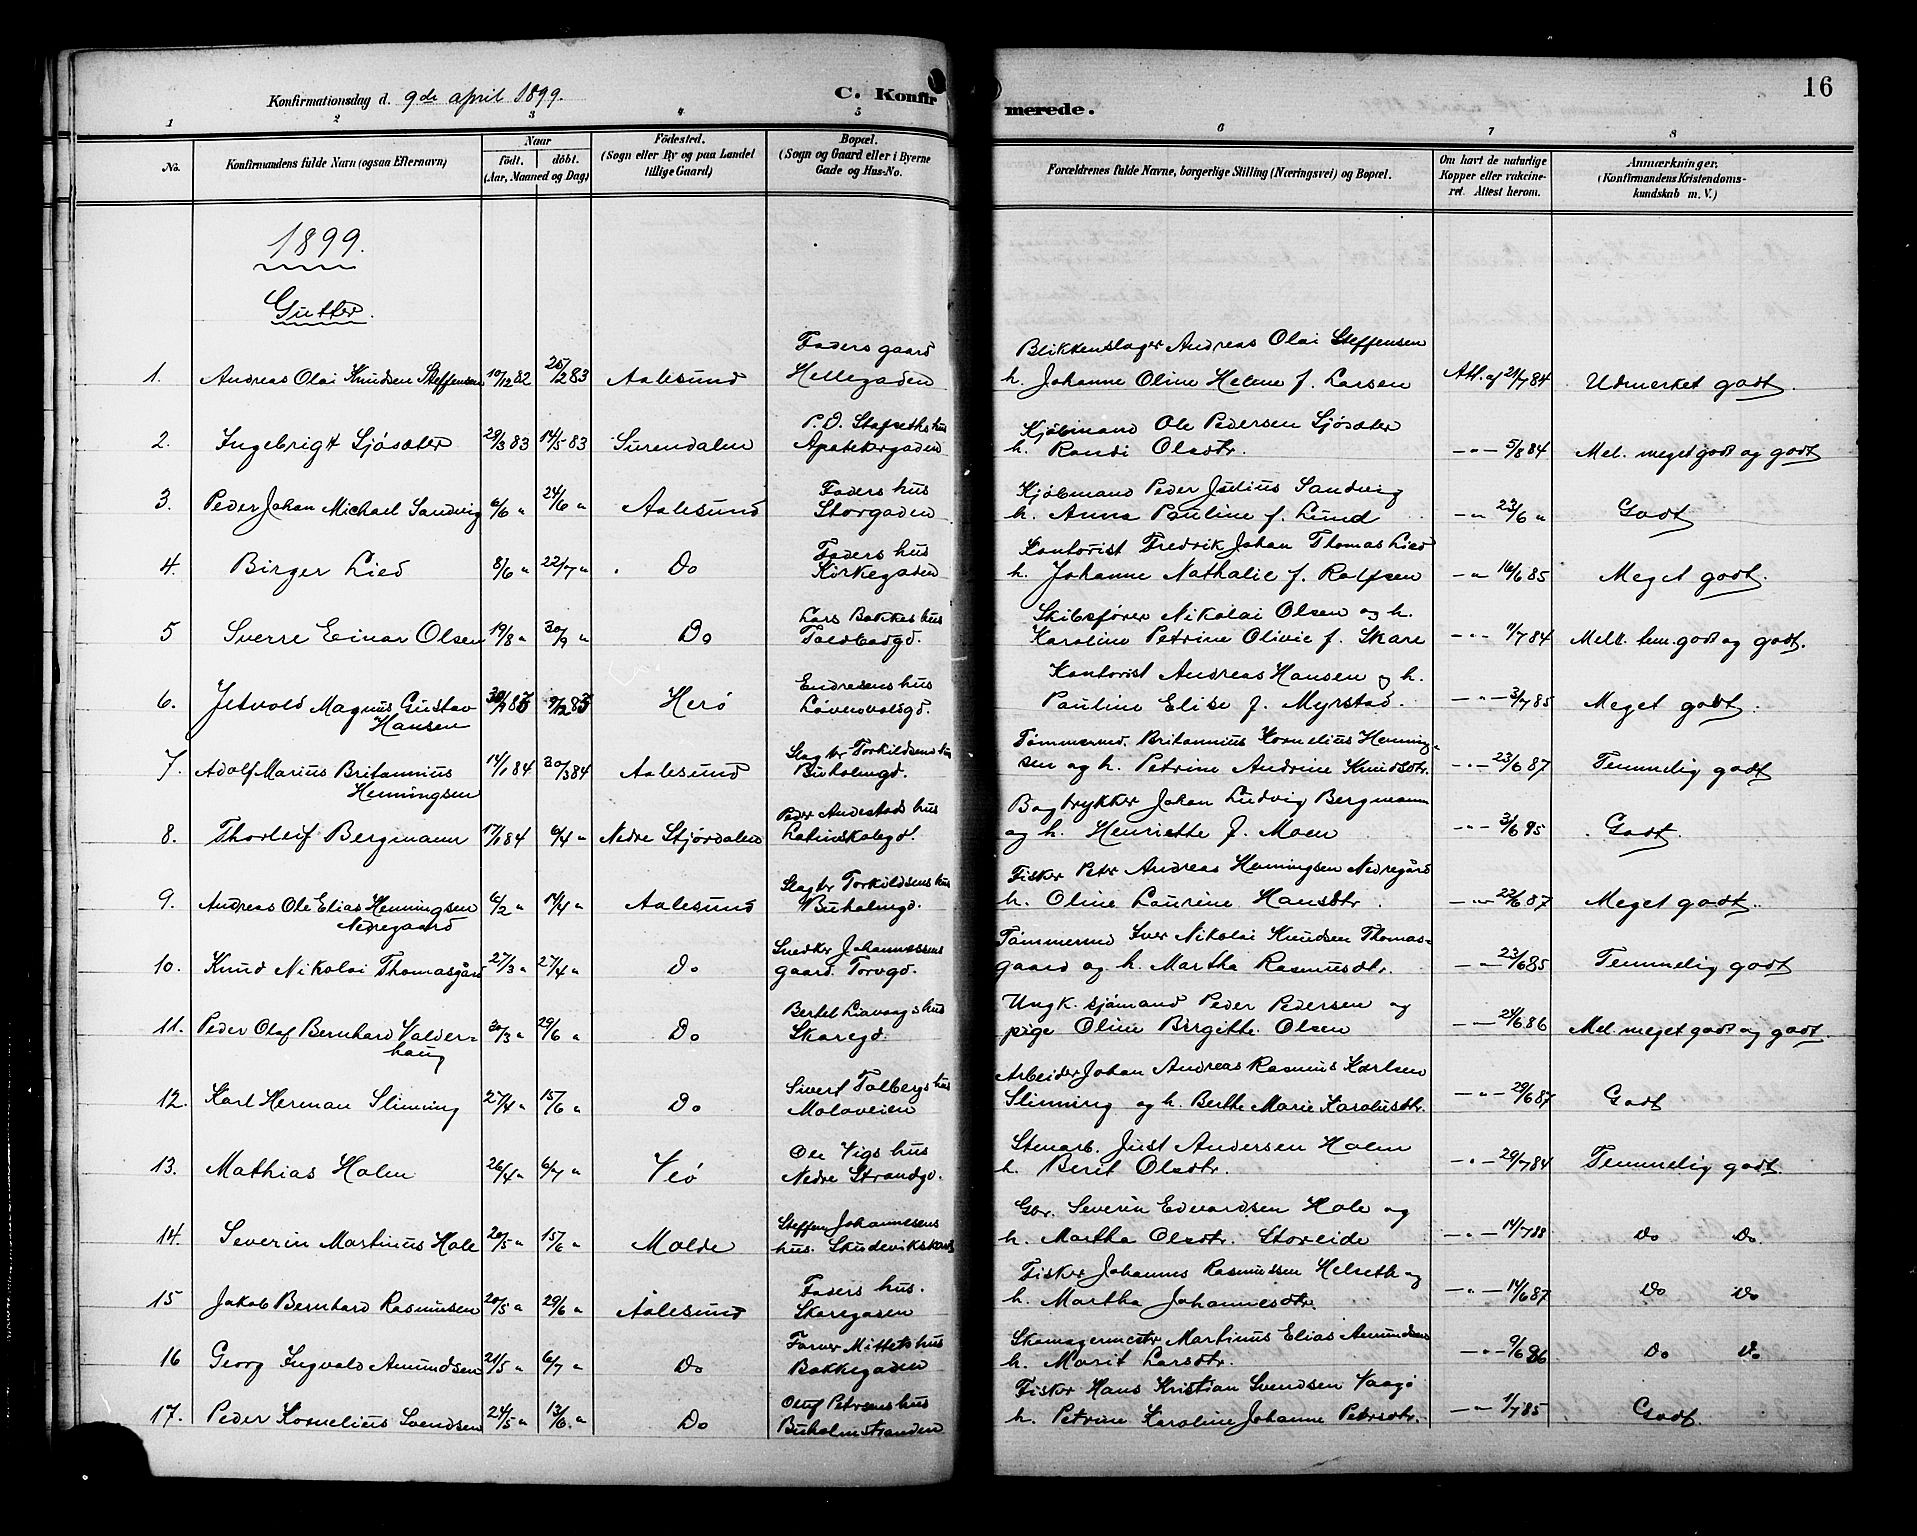 Konfirmationsdag d. 9de april 1899.
C. Konfir
merede.
16
1 2 3 4 5 6 7 8
No.
Konfirmandens fulde Navn (ogsaa Efternavn)
Naar
födt. döbt.
(Aar, Maaned og Dag)
Födested.
(Sogn eller By og paa Landet
tillige Gaard)
Bopæl.
(Sogn og Gaard eller i Byerne
Gade og Hus-No.
Forældrenes fulde Navne, borgerlige Stilling (Næringsvei) og Bopæl.
Om havt de naturlige
Kopper eller vakcine-
ret. Attest herom.
Anmærkninger.
(Konfirmandens Kristendoms-
kundskab m. V.)
1899.
Gutter.
Faders gaard Blikkenslager Andreas Olai Steffensen
1. Andreas Olai Knudsen Steffensen 10/12 82 25/2 83 Aalesund Hellegaden h. Johanne Oline Helene f. Larsen Att. af 21/7 84 Udmerket godt.
P.O. Stafseths hus Kjöbmand Ole Pedersen Sjösæter
2. Ingebrigt Sjösæter 29/3 83 14/5 83 Surendalen Apothekergaden h. Randi Olsdtr. -"- 5/8 84 Mel. meget godt og godt
Faders hus Kjöbmand Peder Julius Sandvig
3. Peder Johan Michael Sandvig 6/6 " 24/6 " Aalesund Storgaden h. Anna Pauline f. Lund -"- 23/6 " Godt
Faders hus Kontorist Fredrik Johan Thomas Lied
4. Birger Lied 8/6 " 22/7 " Do Kirkegaden h. Johanne Nathalie f. Rolfsen -"- 16/6 85 Meget godt.
Lars Bakkes hus Skibsförer Nikolai Olsen og h.
5 Sverre Einar Olsen 19/8 " 30/9 " Do Toldbodgd. Karoline Petrine Olivie f. Skare -"- 11/7 84 Mell. tem. godt og godt.
Endresens hus Kontorist Andreas Hansen og h.
6. Jetvold Magnus Gustav Herö Lövenvoldgd. Pauline Elise f. Myrstad. -"- 3/7 85 Meget godt.
Hansen
Slagter Torkildsens hus Tömmermd. Britannius Kornelius Henning-
7. Adolf Marius Britannius 14/1 84 30/3 84 Aalesund Buholmgd. sen og h. Petrine Andrine Knudsdtr. -"- 23/6 87 Temmelig godt
Henningsen
Peder Andestads hus Bogtrykker Johan Ludvig Bergmann
8. Thorleif Bergmann 17/1 84 6/4 " Nedre Stjördalen Latinskolegd. og h. Henriette f. Moen -"- 3/6 95 Godt.
Slagter Torkildsens hus Fisker Petr Andreas Henningsen Nedregård
9. Andreas Ole Elias Henningsen 6/2 " 14/4 " Aalesund Buholmgd. h. Oline Laurine Hansdtr. -"- 22/6 87 Meget godt.
Nedregaard
Snedker Johannessens Tömmermd Iver Nikolai Knudsen Thomas-
10. Knud Nikolai Thomasgård 27/3 " 27/4 " Do gaard. Torvgd. gaard og h. Martha Rasmusdtr. -"- 23/6 85 Temmelig godt
Bertel Liavaags hus Ungk. sjömand Peder Pedersen og
11. Peder Olaf Bernhard Valder- 30/3 " 29/6 " Do Skaregd. pige Oline Birgitte Olsen -"- 21/6 86 Mel. meget godt og godt.
haug
Sivert Tolbergs hus Arbeider Johan Andreas Rasmus Karlsen
12. Karl Herman Slinning 27/4 " 15/6 " Do Moloveien Slinning og h. Berthe Marie Karolusdtr. -"- 29/6 87 Godt
Ole Vigs hus Stenarb. Just Andersen Holm
13. Mathias Holm 26/4 " 6/7 " Veö Nedre Strandgd. h. Berit Olsdtr. -"- 29/7 84 Temmelig godt.
Steffen Johannesens Gbr. Severin Edvardsen Hole og
14. Severin Martinus Hole 20/5 " 15/6 " Molde hus. h. Martha Olsdtr. Storeide -"- 14/7 88 Do Do.
Faders hus. Fisker Johannes Rasmussen Helseth og
15 Jakob Bernhard Rasmusen 20/5 " 29/6 " Aalesund Skaregaden h. Martha Johannesdtr. -"- 14/6 87 Do Do
Farver Mittets hus Skomagermestr Martinus Elias Amundsen
16 Georg Ingvald Amundsen 21/5 " 6/7 " Do Bakkegaden h. Marit Larsdtr. -"- Do Do
Oluf Petrsens hus Fisker Hans Kristian Svendsen Vaagö
17. Peder Kornelius Svendsen 24/5 " 13/6. " Do Buholmstranden h. Petrine Karoline Johanne Petrsdtr. -"- 1/7 85 Godt.